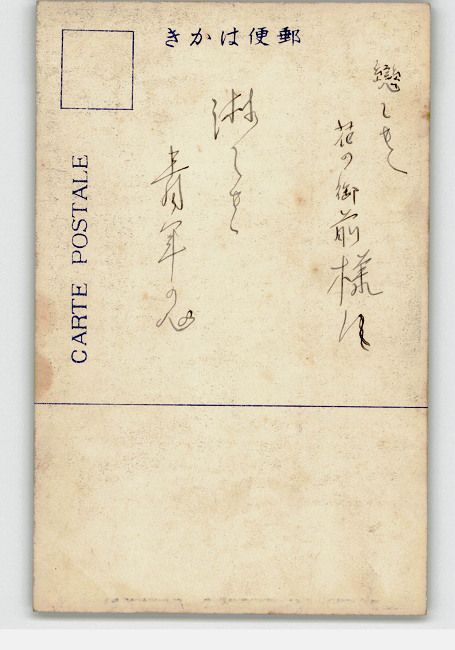 郵便はかき
CARTE POSTALE
戀しき
花の御前様は
淋しき
青年の